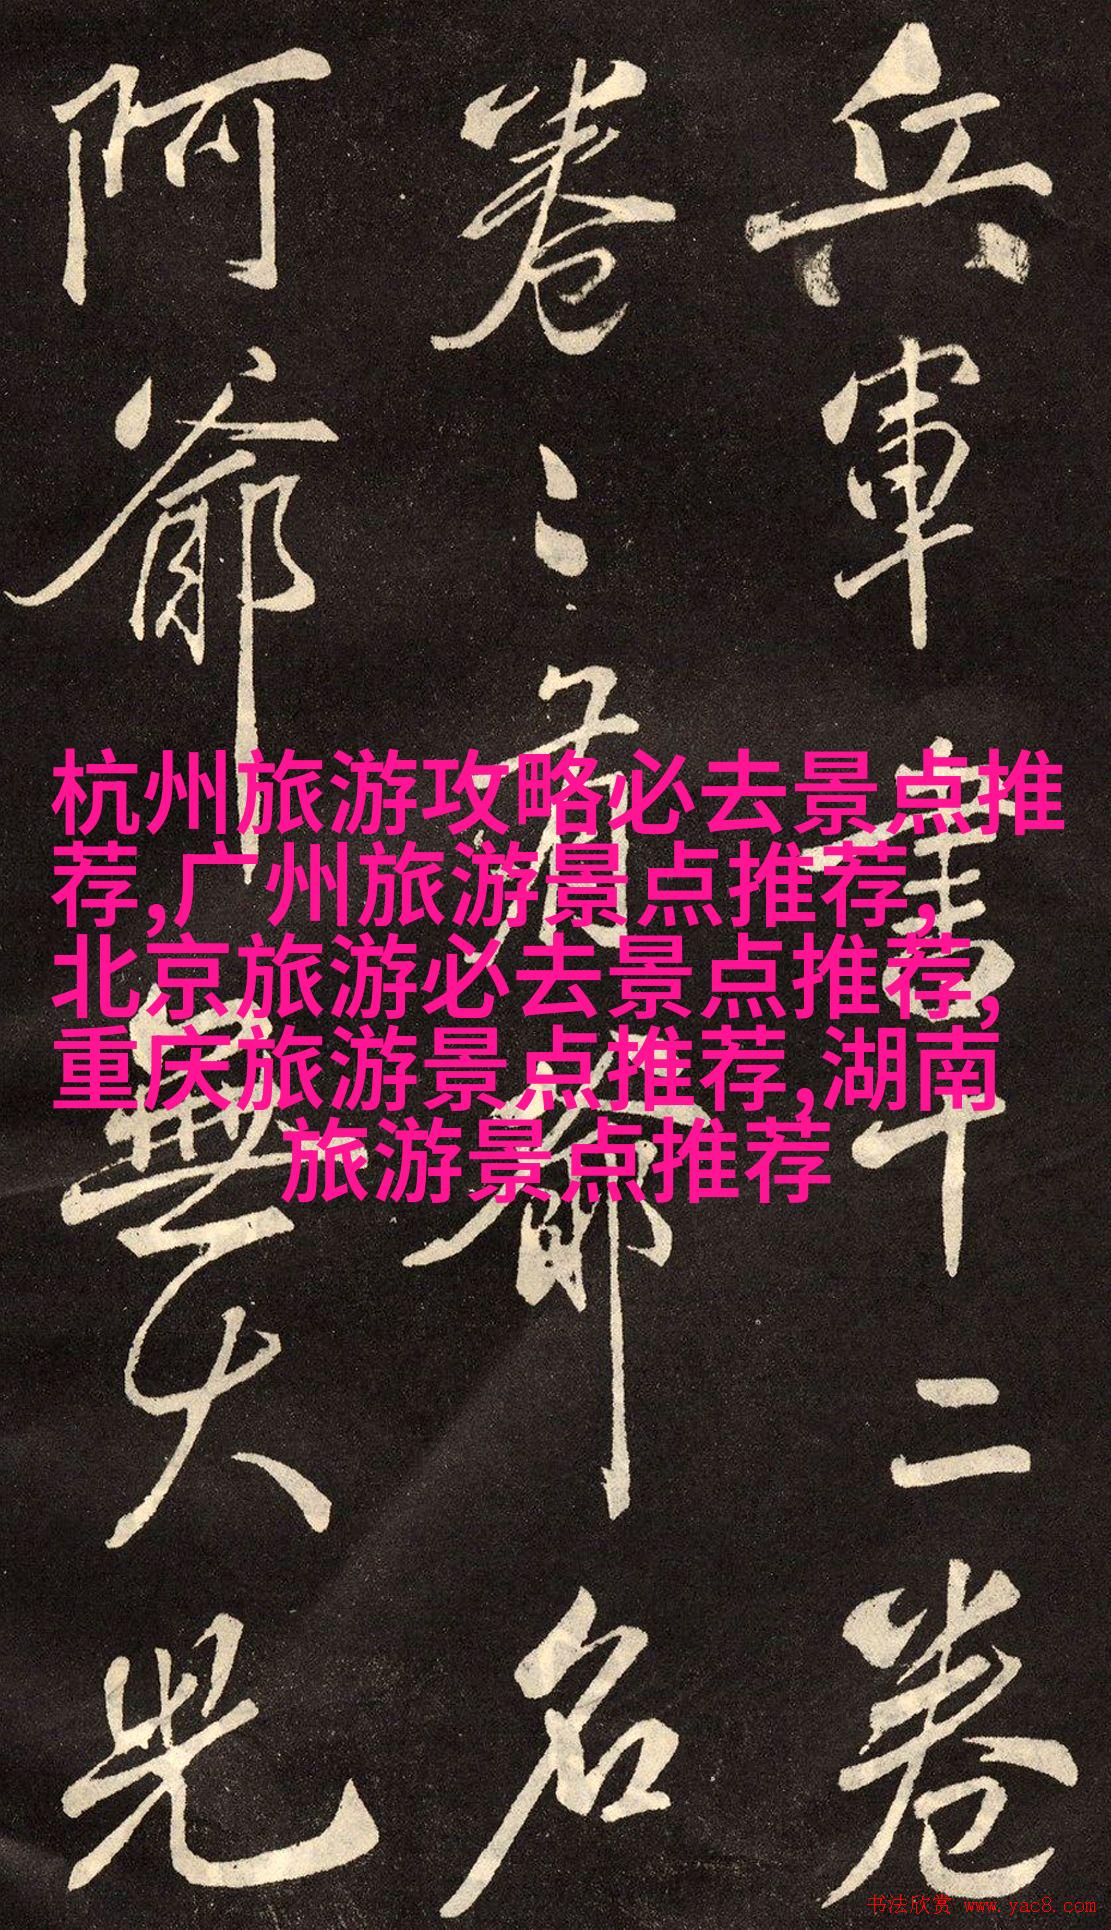 兵軍書十二卷
卷々有爺名
阿爺無大兒
杭州旅游攻略必去景点推
荐,广州旅游景点推荐,
北京旅游必去景点推荐,
重庆旅游景点推荐,湖南
旅游景点推荐
书法欣赏 www.yac8.com